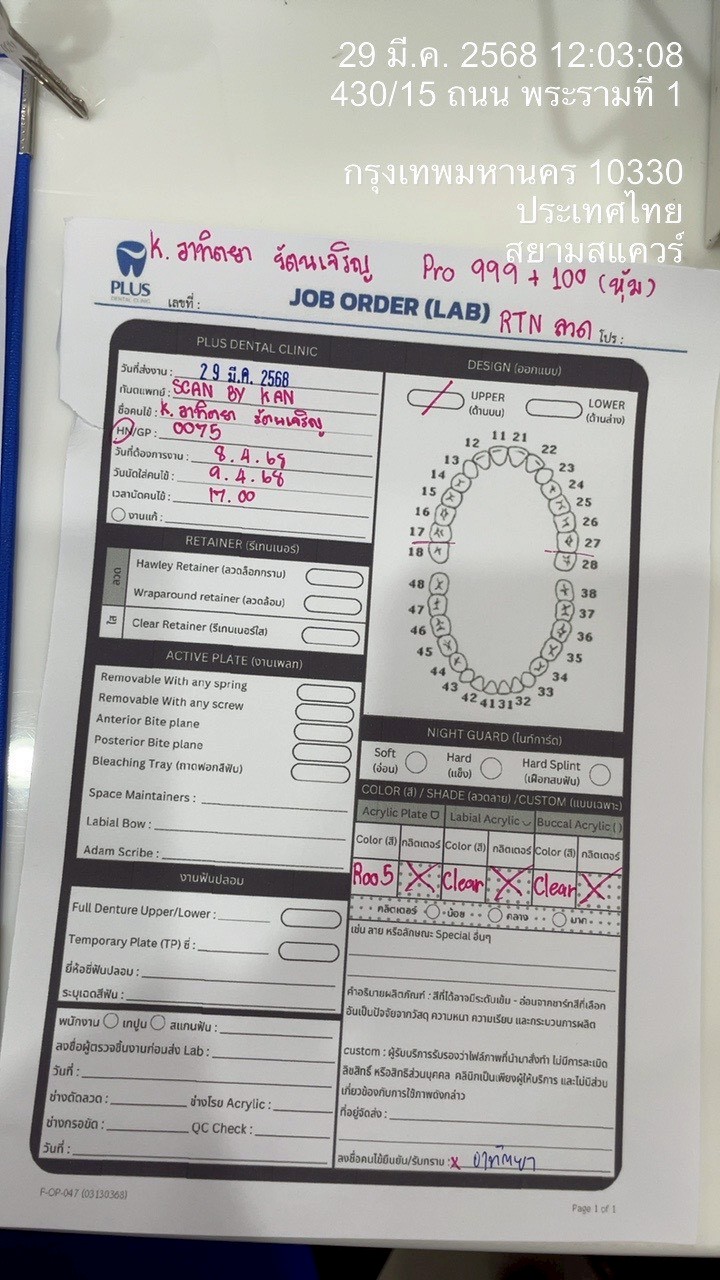 29 มี.ค. 2568 12:03:08
430/15 ถนน พระรามที่ 1
กรุงเทพมหานคร 10330
ประเทศไทย
สยามสแควร์
K. อาทิตยา รัตนเจริญ Pro 999 + 100 (หุ้ม)
PLUS
DENTAL CLINIC
เลขที่ :
JOB ORDER (LAB)
RTN ลวด โปร :
PLUS DENTAL CLINIC
วันที่ส่งงาน : 29 มี.ค. 2568
ทันตแพทย์ : SCAN BY KAN
ชื่อคนไข้ : K. อาทิตยา รัตนเจริญ
HN/GP : 0075
วันที่ต้องการงาน : 8.4.68
วันนัดใส่คนไข้ : 9.4.68
เวลานัดคนไข้ : 17.00
งานแก้ :
RETAINER (รีเทนเนอร์)
ลวด
Hawley Retainer (ลวดล็อกกราม)
Wraparound retainer (ลวดล้อม)
ใส
Clear Retainer (รีเทนเนอร์ใส)
ACTIVE PLATE (งานเพลท)
Removable With any spring
Removable With any screw
Anterior Bite plane
Posterior Bite plane
Bleaching Tray (ถาดฟอกสีฟัน)
Space Maintainers :
Labial Bow :
Adam Scribe :
งานฟันปลอม
Full Denture Upper/Lower :
Temporary Plate (TP) ซี่ :
ยี่ห้อซี่ฟันปลอม :
ระบุเฉดสีฟัน :
พนักงาน เทปูน สแกนฟัน :
ลงชื่อผู้ตรวจชิ้นงานก่อนส่ง Lab :
วันที่ :
ช่างดัดลวด : ช่างโรย Acrylic :
ช่างกรอขัด : QC Check :
วันที่ :
DESIGN (ออกแบบ)
UPPER (ด้านบน)
LOWER (ด้านล่าง)
11 21
12 22
13 23
14 24
15 25
16 26
17 27
18 28
48 38
47 37
46 36
45 35
44 34
43 33
42 41 31 32
NIGHT GUARD (ไนท์การ์ด)
Soft (อ่อน)
Hard (แข็ง)
Hard Splint (เฝือกสบฟัน)
COLOR (สี) / SHADE (ลวดลาย) /CUSTOM (แบบเฉพาะ)
Acrylic Plate Labial Acrylic Buccal Acrylic ( )
Color (สี) กลิตเตอร์ Color (สี) กลิตเตอร์ Color (สี) กลิตเตอร์
R005 X Clear X Clear X
กลิตเตอร์ น้อย กลาง มาก
เช่น ลาย หรือลักษณะ Special อื่นๆ
คำอธิบายผลิตภัณฑ์ : สีที่ได้อาจมีระดับเข้ม - อ่อนจากชาร์ทสีที่เลือก
อันเป็นปัจจัยจากวัสดุ ความหนา ความเรียบ และกระบวนการผลิต
custom : ผู้รับบริการรับรองว่าไฟล์ภาพที่นำมาสั่งทำ ไม่มีการละเมิด
ลิขสิทธิ์ หรือสิทธิส่วนบุคคล คลินิกเป็นเพียงผู้ให้บริการ และไม่มีส่วน
เกี่ยวข้องกับการใช้ภาพดังกล่าว
ที่อยู่จัดส่ง :
ลงชื่อคนไข้ยืนยัน/รับทราบ : x อาทิตยา
F-OP-047 (03130368)
Page 1 of 1